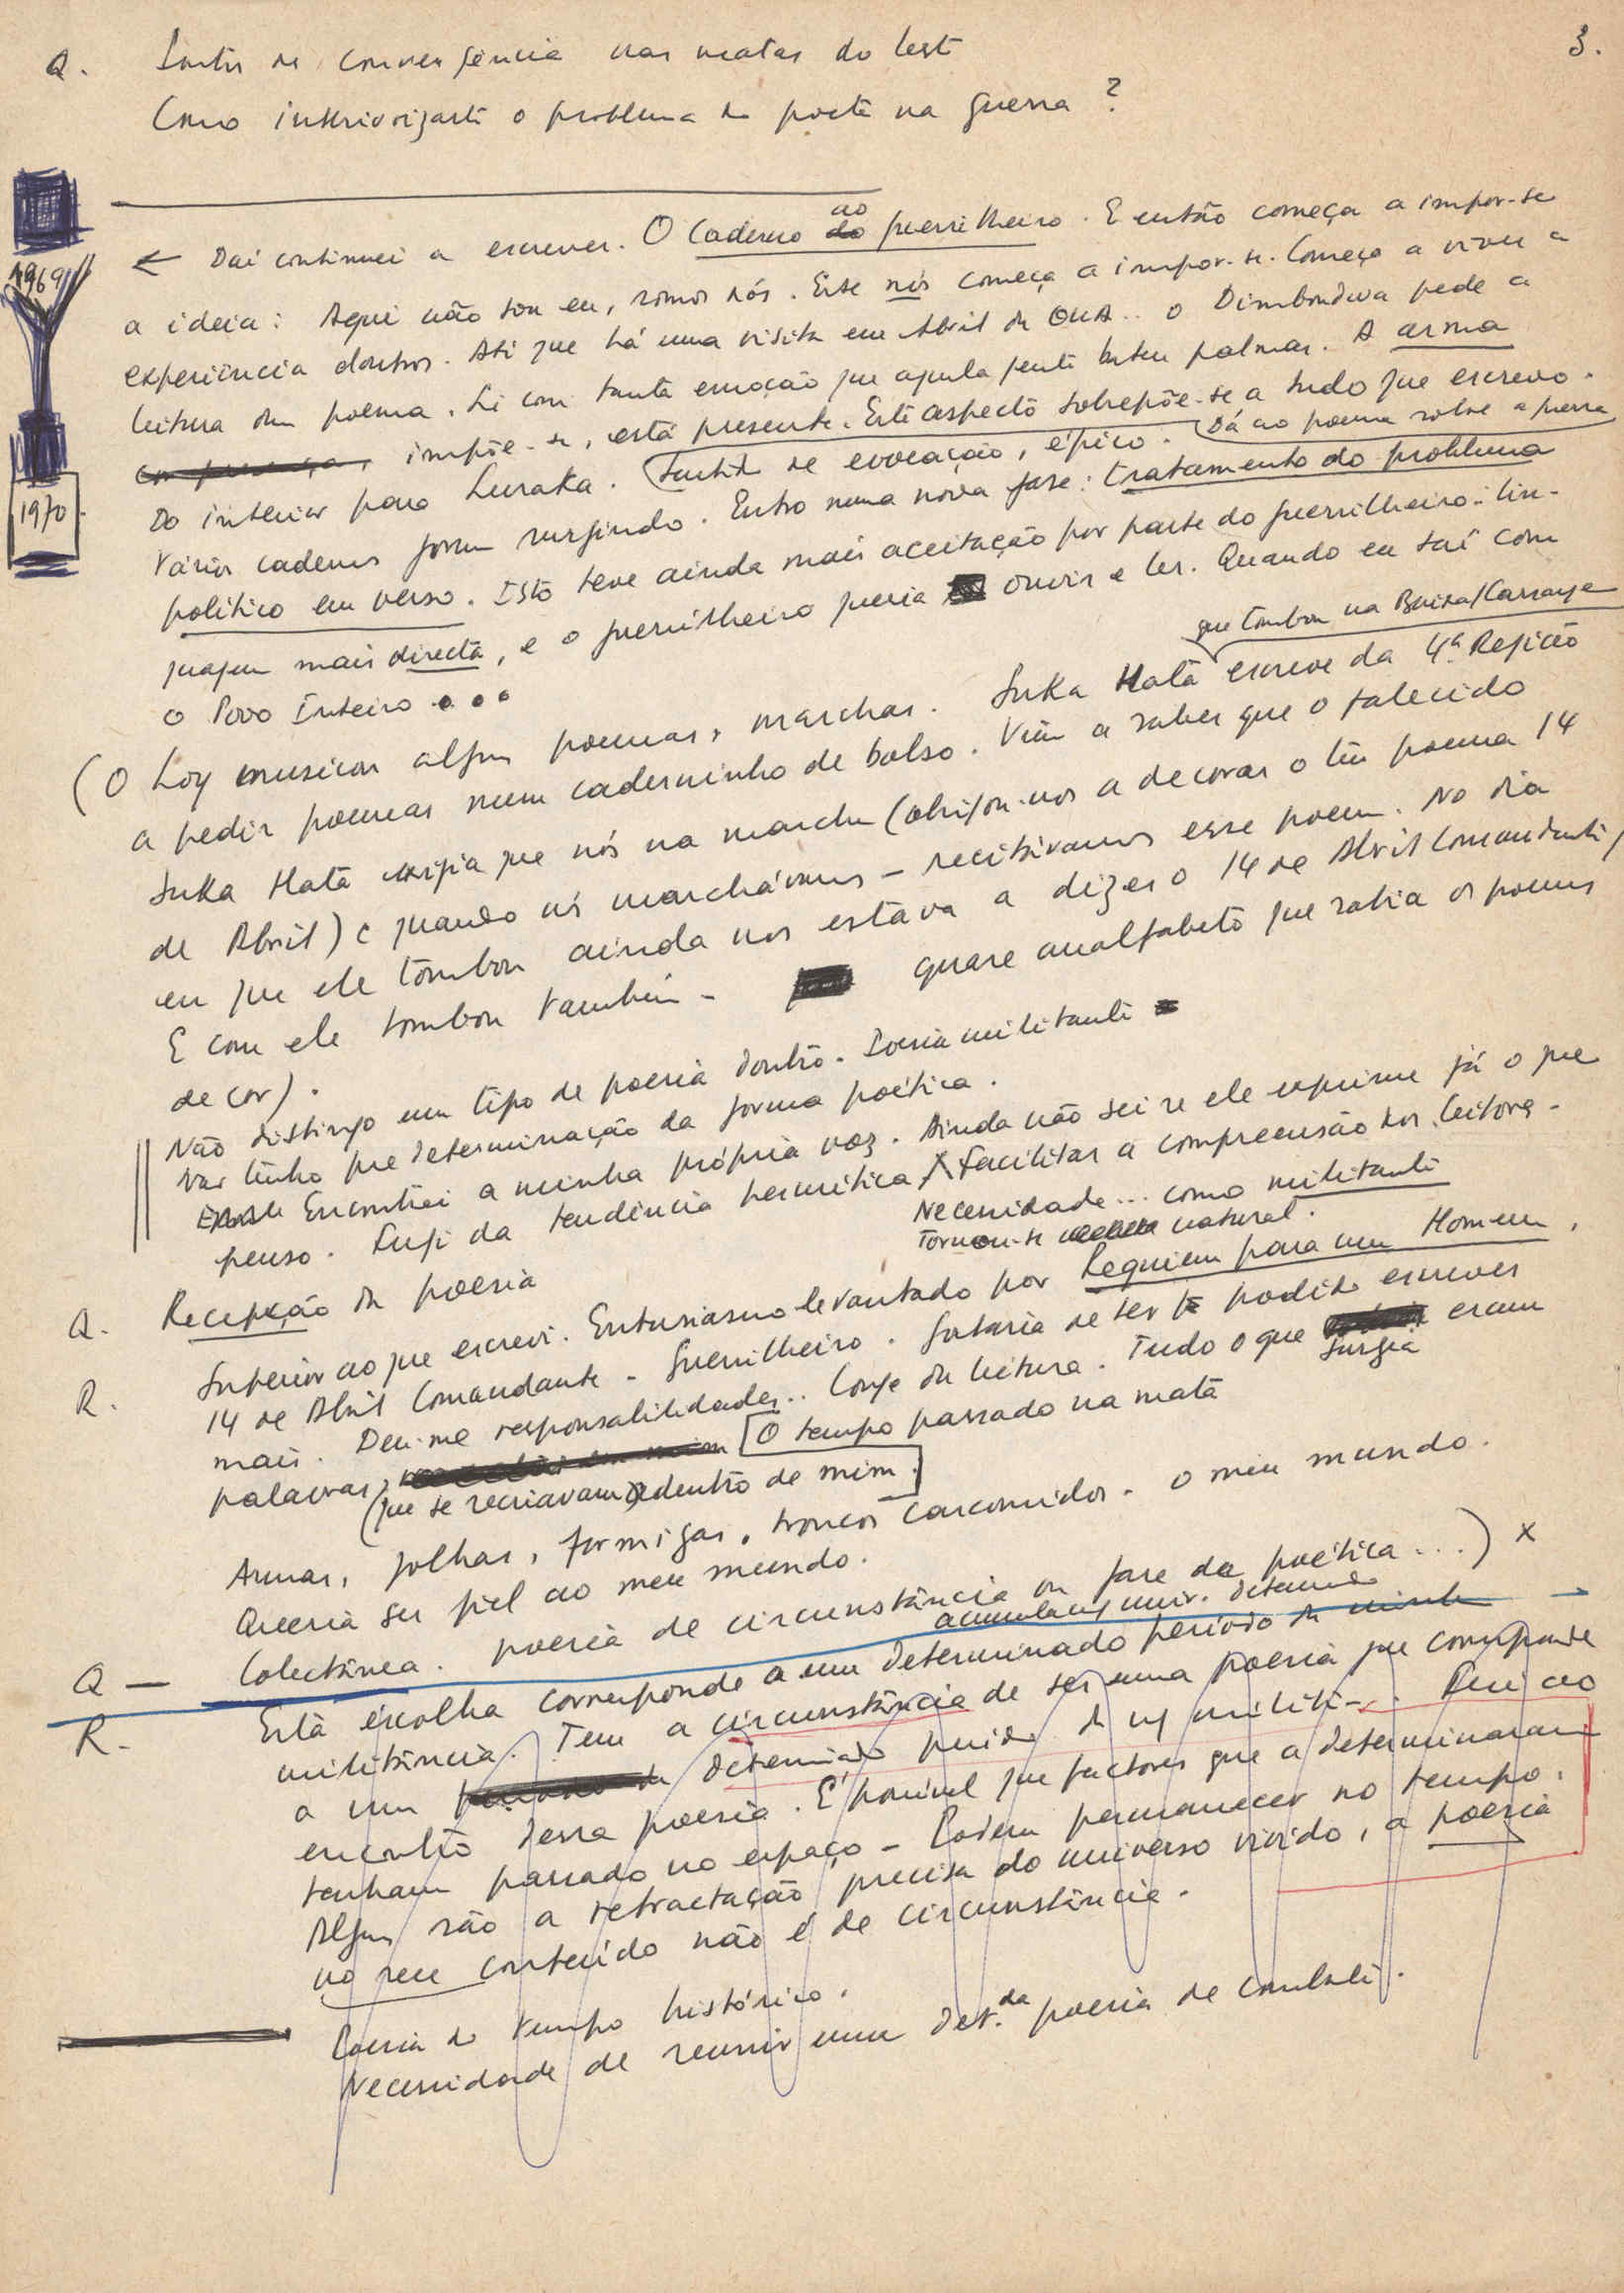 3.
Q. Pontos de convergência nas matas do leste
Como interiorizaste o problema do poeta na guerra?
1969
1970
← Daí continuei a escrever. O Caderno do ao guerrilheiro. E então começa a impor-se
a ideia: Aqui não sou eu, somos nós. Este nós começa a impor-se. Começo a viver a
experiência doutros. Até que há uma visita em Abril da OUA.. o Dimbondwa pede a
leitura dum poema. Li com tanta emoção que aquela gente bateu palmas. A arma
impõe-se, está presente. Este aspecto sobrepõe-se a tudo que escrevo.
Do interior para Lusaka. Sentido de evocação, épico. Dá ao poema sobre a guerra
Vários cadernos foram surgindo. Entro numa nova fase: tratamento do problema
político em verso. Isto teve ainda mais aceitação por parte do guerrilheiro: lin-
guagem mais directa, e o guerrilheiro queria ouvir e ler. Quando eu saí com
o Povo Inteiro...
que tombou na Baixa/Cassange
(O Loy musicou alguns poemas, marchas. Juka Mata escreve da 4ª. Região
a pedir poemas num caderninho de bolso. Vim a saber que o falecido
Juka Mata exigia que nós na marcha (obrigou-nos a decorar o teu poema 14
de Abril) e quando nós marchávamos - recitávamos esse poema. No dia
em que ele tombou ainda nos estava a dizer o 14 de Abril Comandante,
E com ele tombou também - quase analfabeto que sabia os poemas
de cor).
Não distingo um tipo de poesia doutro. Poesia militante
Não tinha predeterminação da forma poética.
Encontrei a minha própria voz. Ainda não sei se ele exprime já o que
penso. Fugi da tendência hermética. Facilitar a compreensão dos leitores.
Necessidade... como militante
Tornou-se natural.
Q. Recepção da poesia
R. Superior ao que escrevi. Entusiasmo levantado por Requiem para um Homem,
14 de Abril Comandante - Guerrilheiro. Gostaria de ter podido escrever
mais. Deu-me responsabilidades.. Longe da leitura. Tudo o que surgia eram
palavras, O tempo passado na mata
(que se recriavam) dentro de mim.
Armas, folhas, formigas, troncos carcomidos. o meu mundo.
Queria ser fiel ao meu mundo.
Q - Colectânea. poesia de circunstância ou fase da poética...) x
R. Esta escolha corresponde a um determinado período da minha
militância. Tem a circunstância de ser uma poesia que corresponde
a um determinado período da militância. Dei ao
encontro dessa poesia. É possível que factores que a determinaram
tenham passado no espaço - Podem permanecer no tempo.
Alguns são a retractação precisa do universo vivido, a poesia
no seu conteúdo não é de circunstância.
Poesia do tempo histórico.
Necessidade de reunir uma det.da poesia de combate.